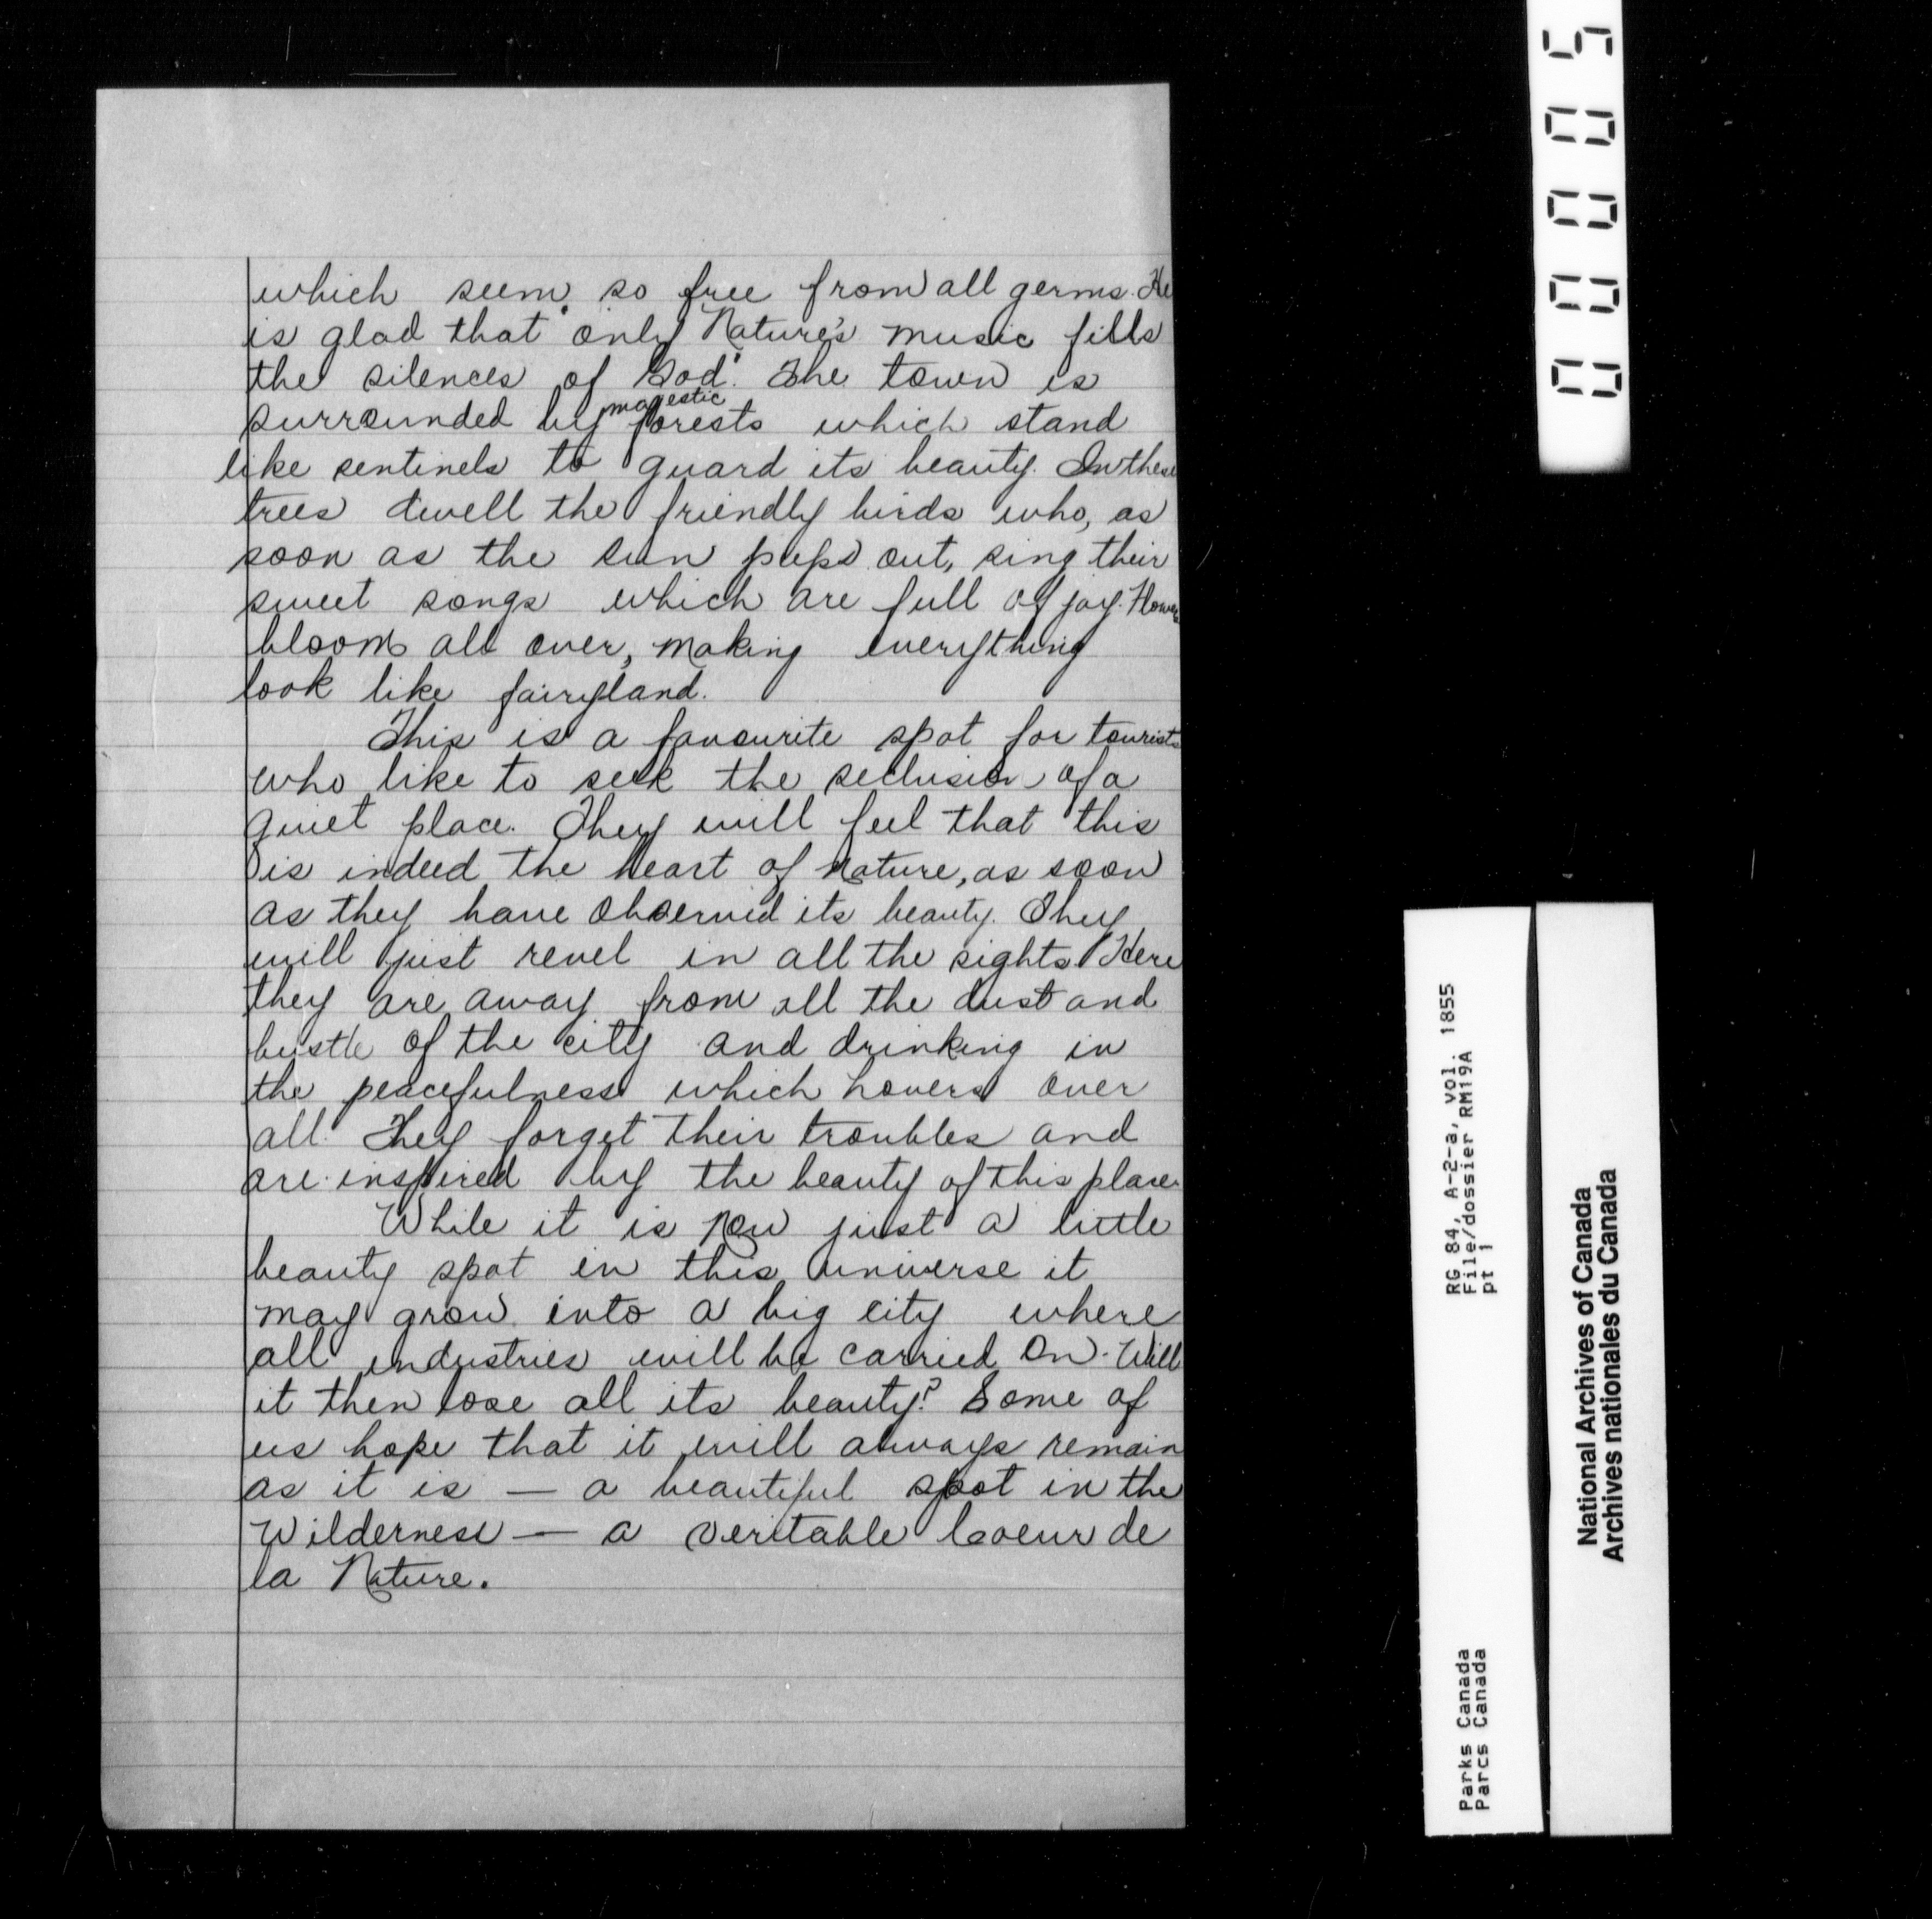 which seem so free from all germs. He
is glad that "only Nature's music fills
the silences of God". The town is
surrounded by majestic forests which stand
like sentinels to guard its beauty. In these
trees dwell the friendly birds who, as
soon as the sun peeps out, sing their
sweet songs which are full of joy. Flowers
bloom all over, making everything
look like fairyland.
This is a favourite spot for tourists
who like to seek the seclusion of a
quiet place. They will feel that this
is indeed the heart of nature, as soon
as they have observed its beauty. They
will just revel in all the sights. Here
they are away from all the dust and
bustle of the city and drinking in
the peacefulness which hovers over
all. They forget their troubles and
are inspired by the beauty of this place.
While it is now just a little
beauty spot in this universe it
may grow into a big city where
all industries will be carried on. Will
it then lose all its beauty? Some of
us hope that it will always remain
as it is — a beautiful spot in the
Wilderness — a veritable Coeur de
la Nature.
00005
RG 84, A-2-a, vol. 1855
File/dossier RM19A
pt 1
Parks Canada
Parcs Canada
National Archives of Canada
Archives nationales du Canada